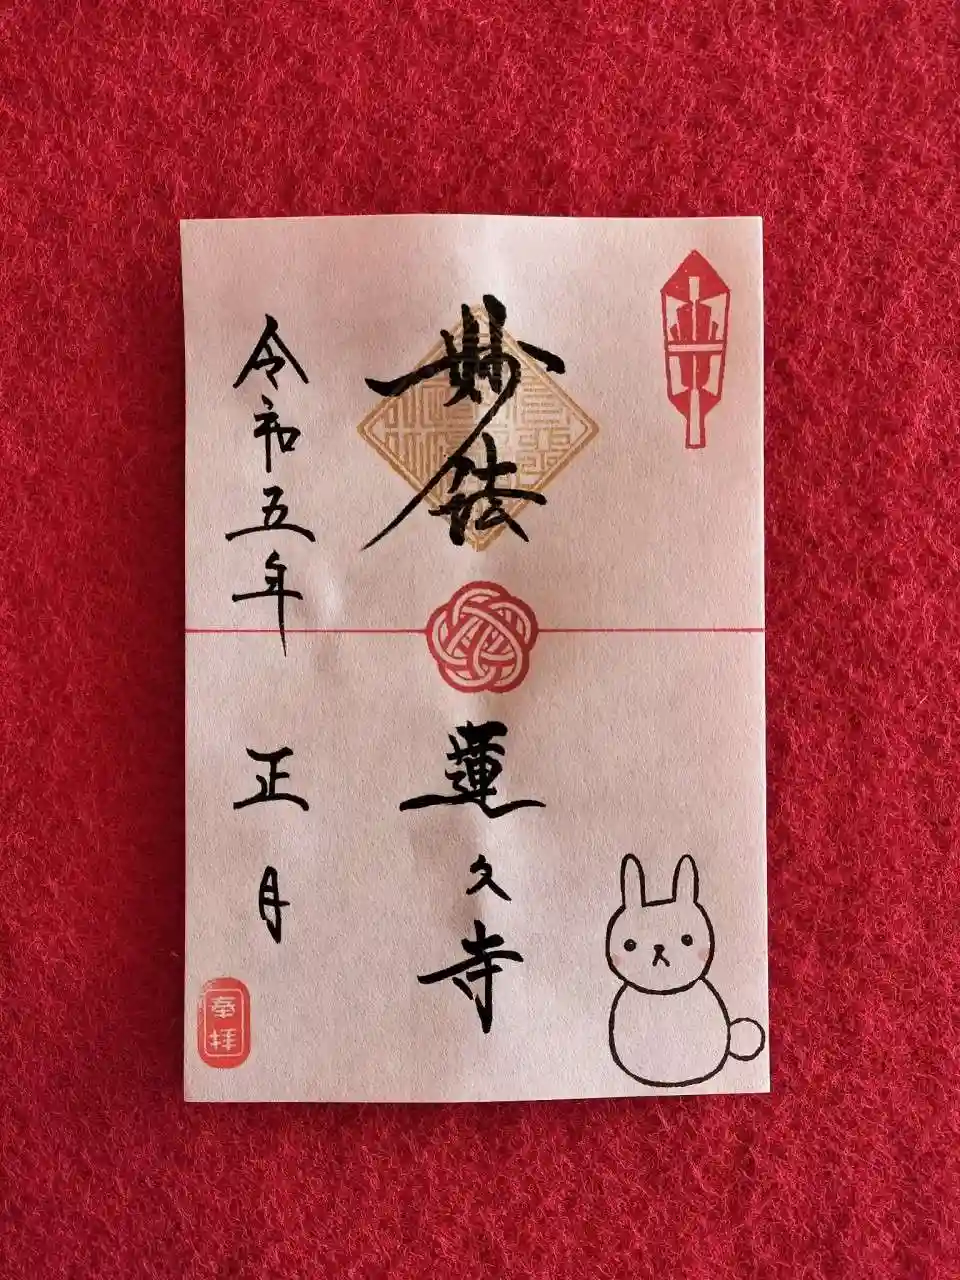 妙法
蓮久寺
令和五年
正月
奉拝